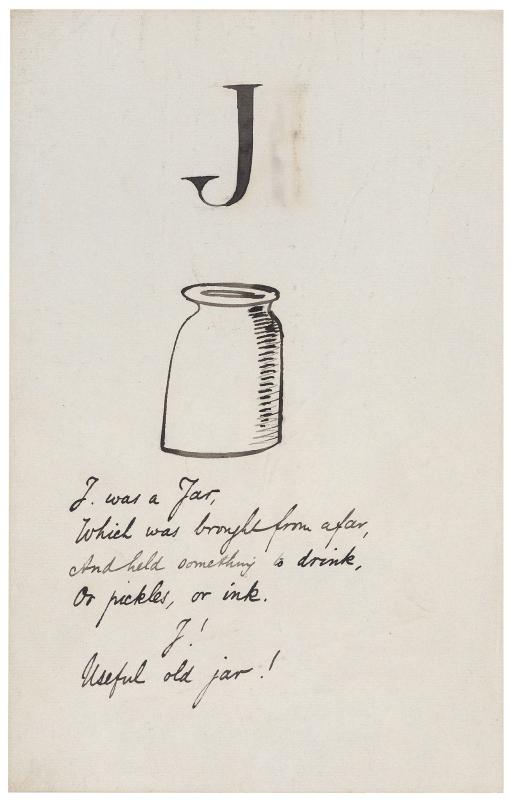 J
J. was a Jar,
Which was brought from afar,
And held something to drink,
Or pickles, or ink.
J!
Useful old jar!